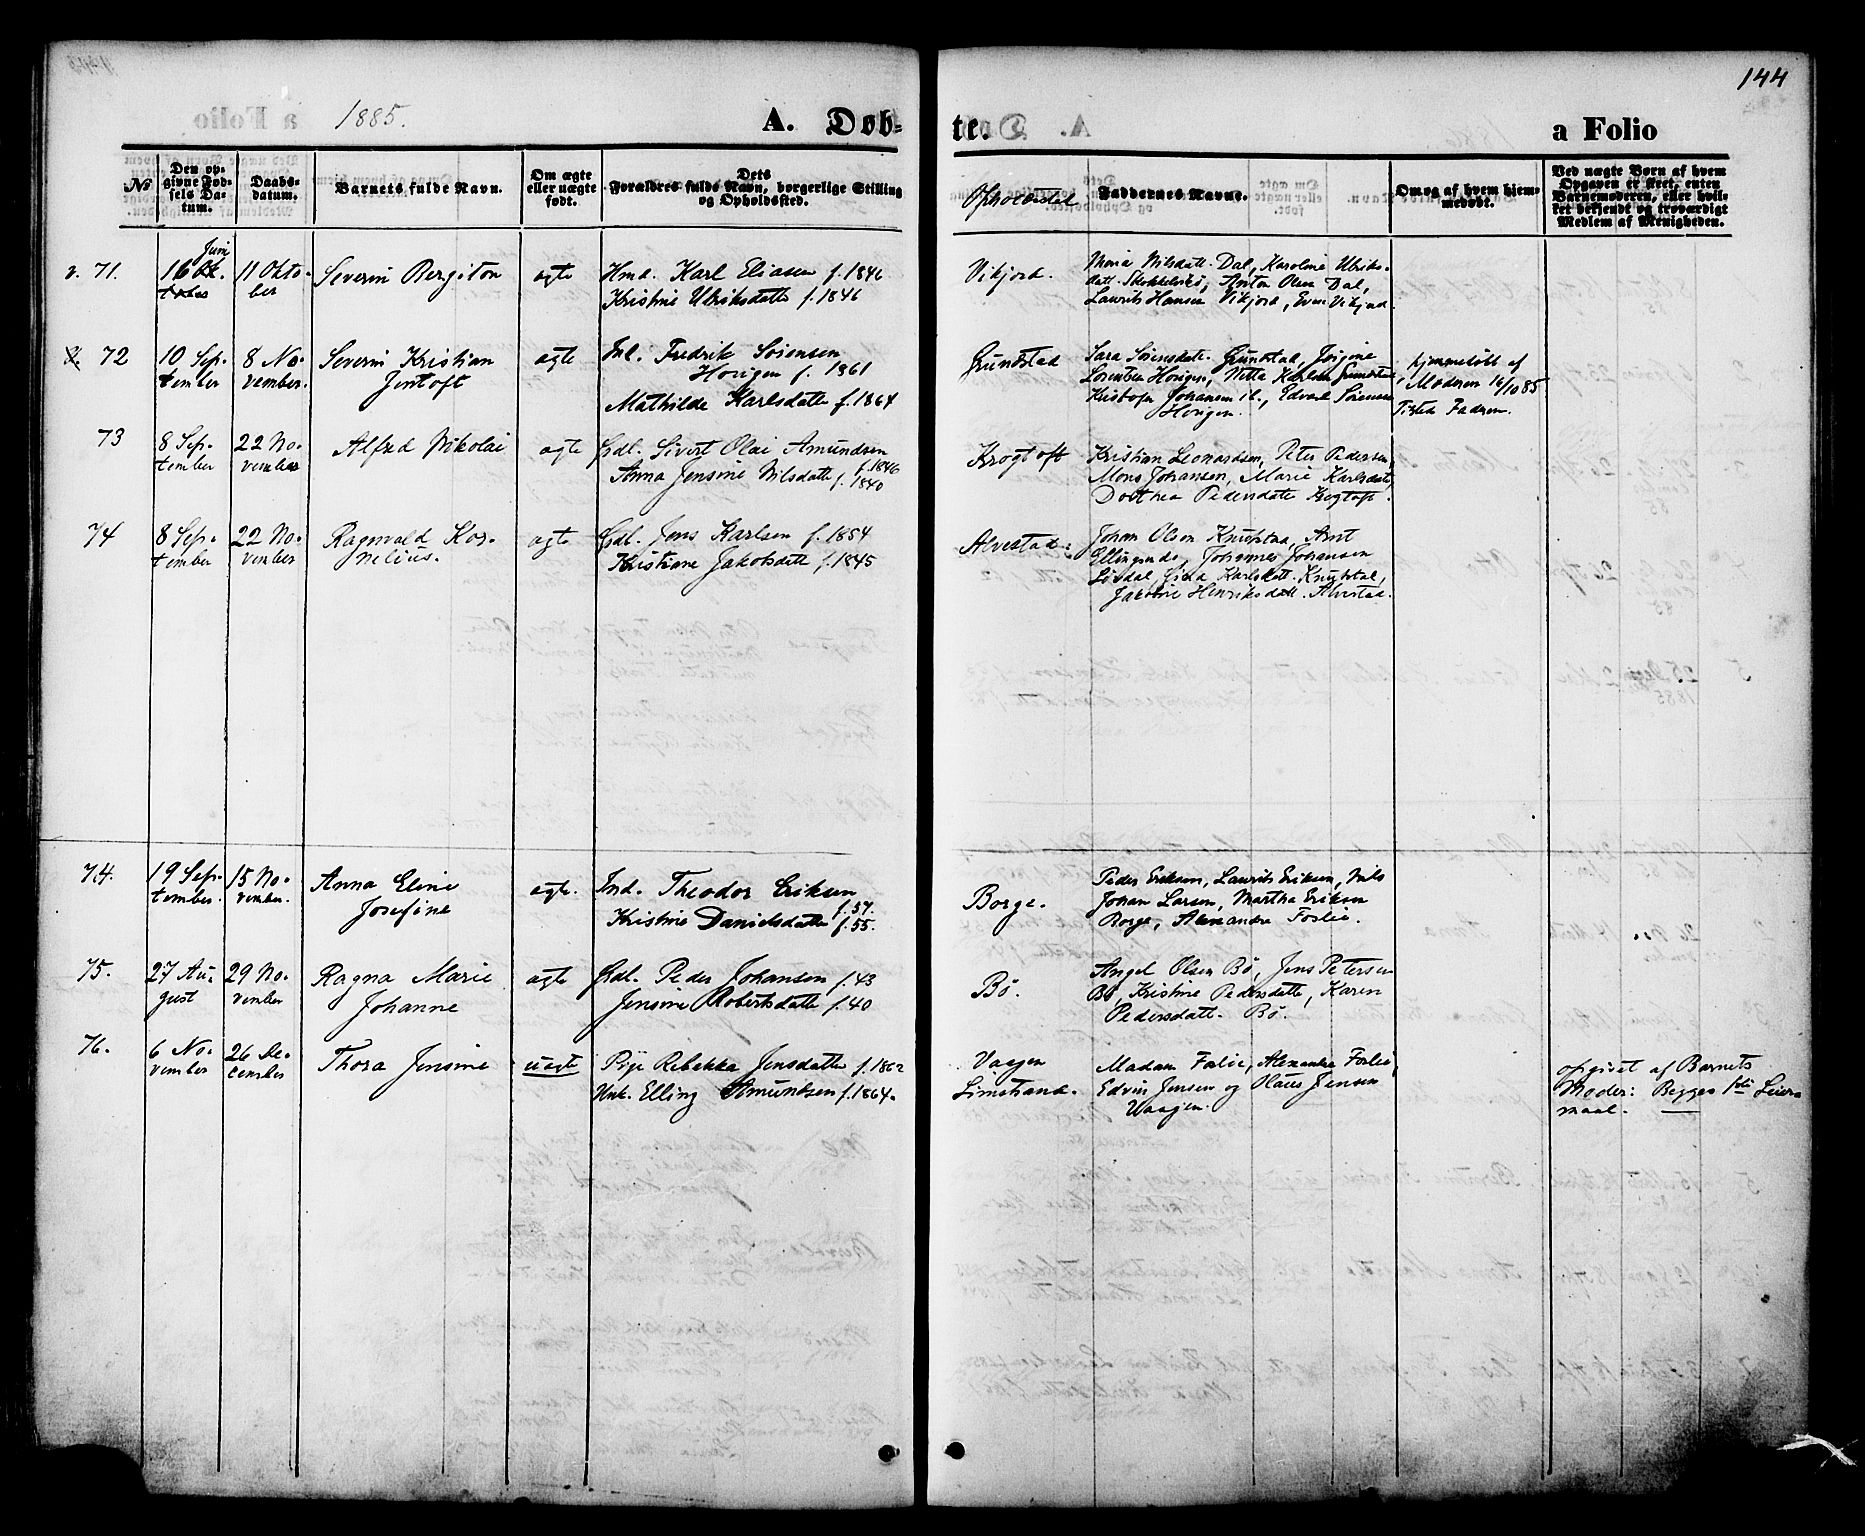 144
1885.
A. Døb-
te.
a Folio
№
Den op-
givne Fød-
sels Da-
tum.
Daabs-
datum.
Barnets fulde Navn.
Om ægte
eller uægte
født.
Dets
Forældres fulde Navn, borgerlige Stilling
og Opholdssted.
Opholdssted
Faddernes Navne.
Om og af hvem hjem-
medøbt.
Ved uægte Børn af hvem
Opgaven er skeet, enten
Barnemoderen, eller hvil-
ket bekjendt og troværdigt
Medlem af Menigheden.
71.
Juni
16
11 Okto-
ber
Severin Bergiton
ægte
Hmd. Karl Eliasen f. 1846
Kristine Ulriksdatter f. 1846
Vikjord.
Nilsdatt. Dal, Karoline Ulriks-
datt. Anton Olsen Dal,
Laurits Hansen Vikjord, Even Vikjord.
72
10 Sep-
tember
8 No-
vember.
Severin Kristian
Jentoft
ægte
Ind. Fredrik Sørensen
Horigen f. 1861
Mathilde Karlsdatter f. 1864
Grundstad
Sara Sørensdatt. Grundstad, Jørgine
Horigen, Karlsen Grundstad,
Kristofer Johansen ib., Edvard Sørensen
Horigen.
hjemmedøbt af
Moderen 16/10 85
Fadren.
73
8 Sep-
tember
22 No-
vember
Alfred Nikolai
ægte
Grdl. Sivert Olai Amundsen
f. 1846
Anna Jensine Nilsdatter f. 1840
Krogtoft
Kristian Leonardsen, Peter Pedersen,
Mons Johansen, Marie Karlsdatt
Dorthea Pedersdatter Krogtoft.
74
8 Sep-
tember
22 No-
vember
Ragnvald Kor-
nelius.
ægte
Grdl. Jens Karlsen f. 1854
Kristiane Jakobsdatt f. 1845
Alvestad.
Johan Olsen Knubstad, Arnt
Johannes Johansen
Karlsdatt. Knubstad,
Jakobine Henriksdatt. Alvestad.
74.
19 Sep-
tember.
15 No-
vember.
Anna Eline
Josefine
ægte.
Ind. Theodor Eriksen
f. 57.
Kristine Danielsdatter f. 55.
Borge.
Peder Eriksen, Laurits Eriksen, Nils
Johan Larsen, Martha Eriksen
Borge, Alexandra Foslie.
75.
27 Au-
gust
29 No-
vember
Ragna Marie
Johanne
ægte
Grdl. Peder Johansen f. 43
Jensine Robertsdatter f. 40
Bø.
Angel Olsen Bø, Jens Petersen
Bø, Kristine Pedersdatter, Karen
Pedersdatt. Bø.
76.
6 No-
vember
26 De-
cember
Thora Jensine
uægte
Pige Rebekka Jensdatter f. 1862
Unk. Elling Amundsen f. 1864.
Vaagen
Limstrand.
Madam Foslie, Alexandra Foslie,
Edvin Jensen og Olaus Jensen
Vaagen.
opgivet af Barnets
Moder: Begges 1ste Leier-
maal.